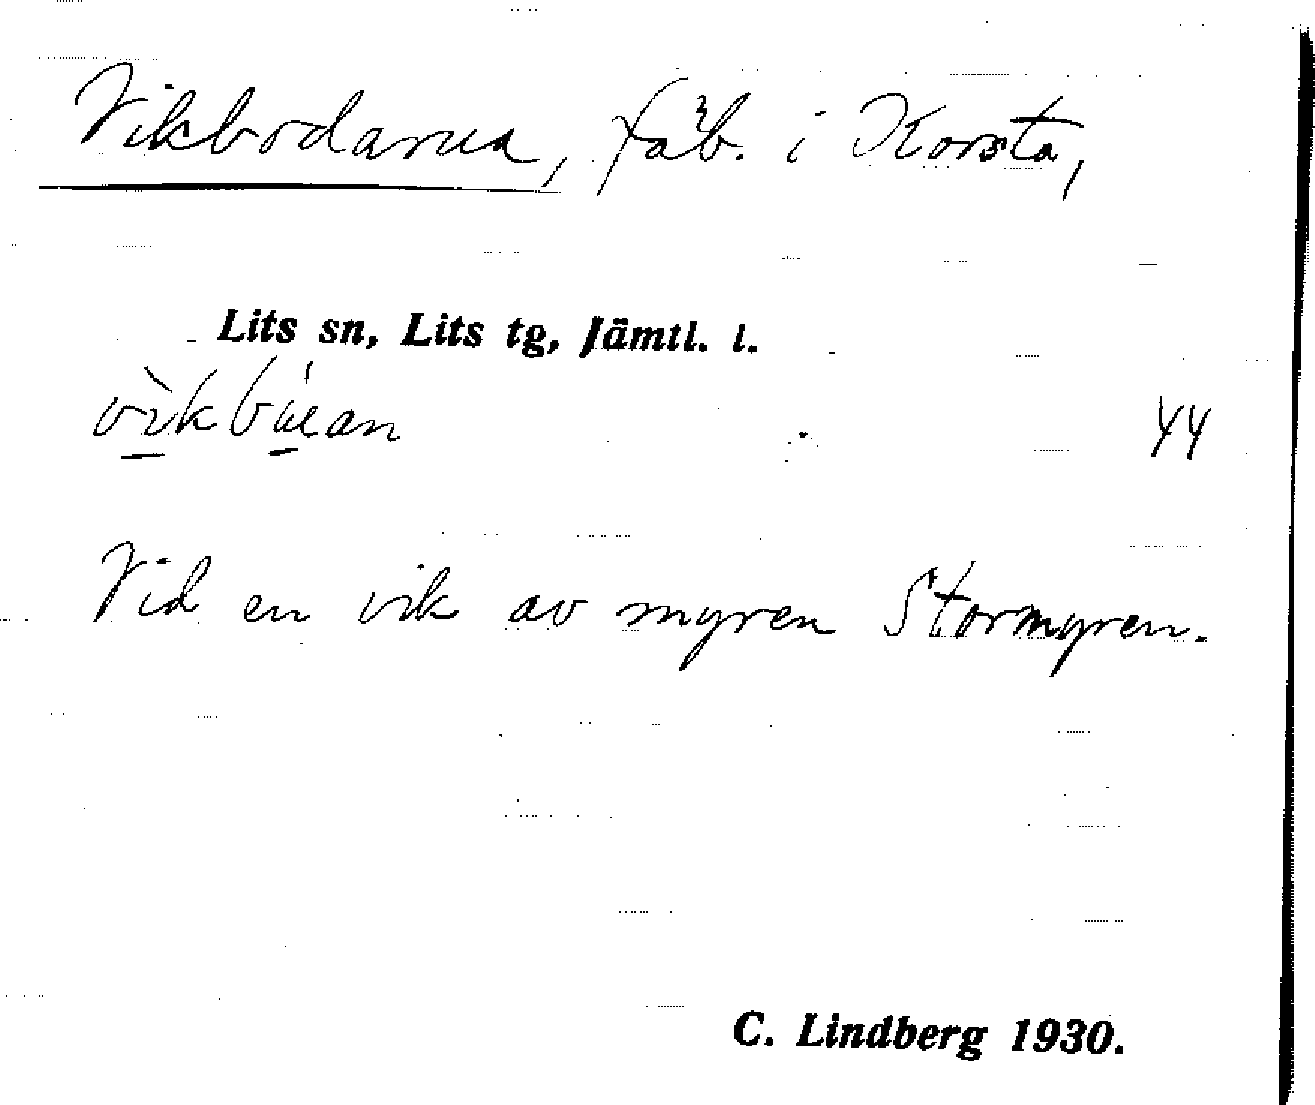 Vikbodarna, fäb. i Korsta,
Lits sn, Lits tg, Jämtl. l.
44
Vid en vik av myren Stormyren.
C. Lindberg 1930.